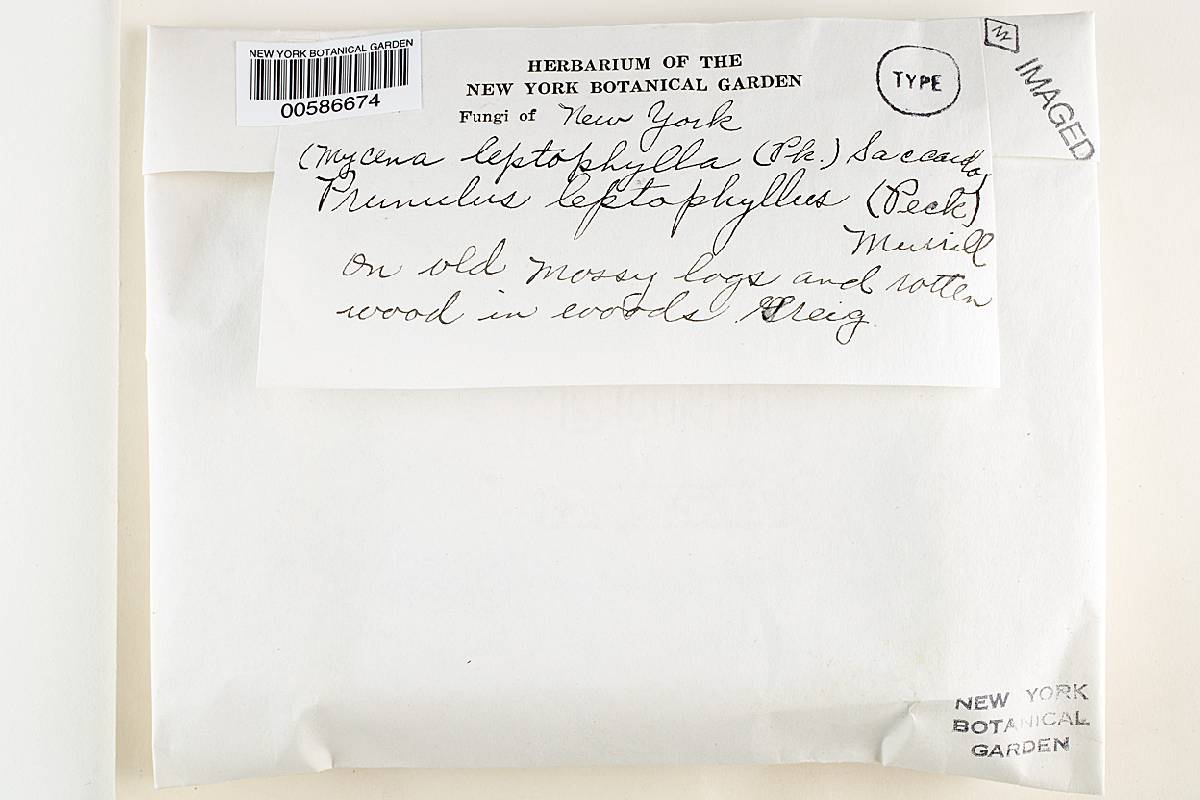 NEW YORK BOTANICAL GARDEN
00586674
HERBARIUM OF THE
NEW YORK BOTANICAL GARDEN
Fungi of New York
(Mycena leptophylla (Pk.) Saccardo)
Prunulus leptophyllus (Peck)
Murrill
On old mossy logs and rotten
wood in woods. Greig
TYPE
IMAGED
NEW YORK
BOTANICAL
GARDEN